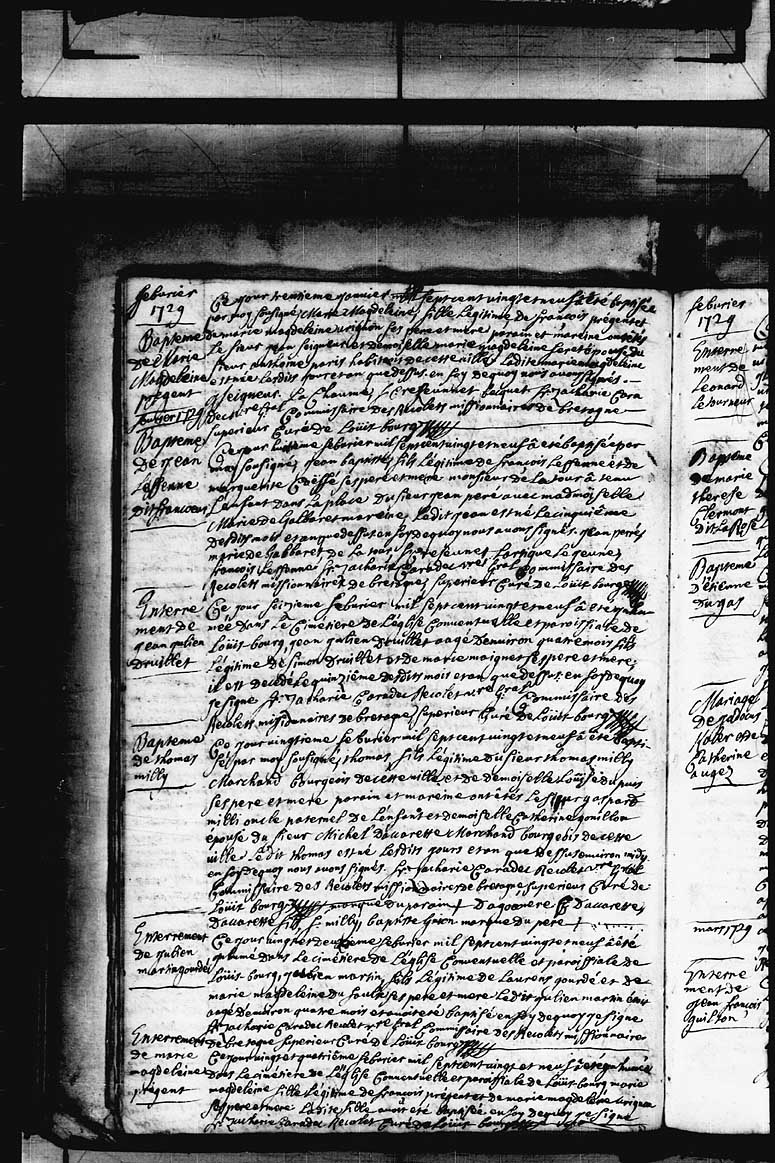 feburier
1729
Bapteme
de Marie
Magdeleine
présent
Ce jour trentieme janvier mil sept cent vingt et neuf à été baptisée
par moy sousigné, Marie Magdeleine, fille Legitime de François présent et
de marie magdeleine ses pere et mere parain et mareine ont étés
Le sieur jean seigneur et demoiselle marie magdeleine épouse du
sieur anthoine paris habitants de cette ville; Ladite marie magdeleine
est née lesdits jour et an que dessus. en foy de quoy nous avons signés.
Seigneur. La Chaume, fr. Zacharie Cara
Recolet Commissaire des Recolets missionnaires de bretagne
superieur Curé de Loüisbourg
feburier 1729
Bapteme
de jean
Lessenne
dit francoeur
Ce jour feburier mil sept cent vingt et neuf à été baptisé par
moy sousigné, jean baptiste, fils Légitime de françois Lessenne et de
marguerite ses pere et mere monsieur de La tour à tenu
L'enfant dans la place du sieur jean peré avec madmoiselle
Marie de Gabbaret mareine, Ledit jean est né Le cinquième
desdits mois et an que dessus en foy de quoy nous avons signés. jean peré
marie de Gabbaret de La tour Lartigue Le jeune,
françois Lessenne fr. Zacharie Caradec Commissaire des
Recolets missionnaires de bretagne, superieur Curé de Loüisbourg
Enterre
ment de
jean julien
Druillet
Ce jour seizieme feburier mil sept cent vingt et neuf à été
née dans Le Cimetière de L'église Conventuelle et paroissiale de
Loüisbourg, jean julien Druillet aagé denviron quatre mois fils
Légitime de simon Druillet et de marie ses pere et mere,
il est decedé Le quinzième desdits mois et an que dessus. en foy de quoy
je signe fr. Zacharie Caradec Recolet Commissaire des
Recolets missionnaires de bretagne, superieur Curé de Loüisbourg
Bapteme
de thomas
milly
Ce jour vingtieme feburier mil sept cent vingt et neuf à été bapti
sé par moy sousigné, thomas, fils Légitime du sieur thomas milly
Marchand bourgeois de cette ville et de demoiselle Loüise dupuis
ses pere et mere parain et mareine ont étés Le sieur gaspard
milli oncle paternel de L'enfant et demoiselle Catherine gonillon
epouse du sieur Michel Daccarette Marchand bourgeois de cette
ville Le dit thomas est né Lesdits jours et an que dessus environ midy
en foy de quoy nous avons signés. fr. Zacharie Caradec Recolet
Commissaire des Recolets missionnaires de bretagne superieur Curé de
Loüisbourg marque du parain + Daccarette,
Daccarette fils, milly, baptiste marque du pere +
Enterrement
de julien
martin gourdel
Ce jour vingt et deuxieme feburier mil sept cent vingt et neuf à été
inhumé dans Le cimetière de L'église Conventuelle et paroissiale de
Loüisbourg, julien martin, fils Légitime de Laurens gourdel et de
marie magdeleine ses pere et mere Ledit julien martin
aagé denviron quatre mois baptisé en foy de quoy je signe
fr. Zacharie Caradec Recolet Commissaire des Recolets missionnaires
de bretagne superieur Curé de Loüisbourg
Enterrement
de marie
magdeleine
présent
Ce jour vingt et quatrième feburier mil sept cent vingt et neuf à été inhumée
dans Le cimetière de L'église Conventuelle et paroissiale de Loüisbourg marie
magdeleine fille Légitime de françois présent et de marie magdeleine
ses pere et mere Ladite fille avoit été baptisée en foy de quoy je signe
fr. Zacharie Caradec Recolet Curé de Loüisbourg
feburier
1729
Enterre
ment de
Leonard
Letourneur
Bapteme
de marie
therese
Clermont
dit La Rose
Bapteme
D'étienne
Dugas
Mariage
de
et de
Catherine
mars 1729
Enterre
ment de
jean françois